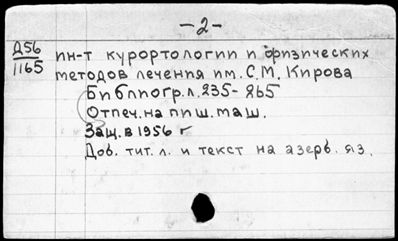 -2-
Д56
1165
ин-т курортологии и физических
методов лечения им. С.М. Кирова
Библиогр. л. 235-865
Отпеч. на пиш. маш.
Защ. в 1956 г
Доб. тит. л. и текст на азерб. яз.